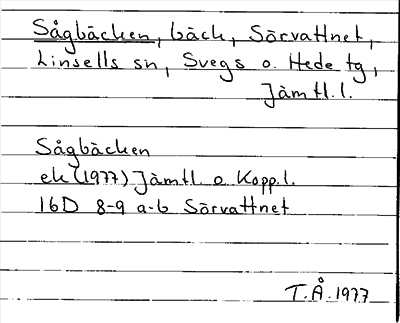 Sågbäcken, bäck, Särvattnet,
Linsells sn, Svegs o. Hede tg,
Jämtl. l.
Sågbäcken
ek (1977) Jämtl. o Kopp. l.
16D 8-9 a-b Särvattnet
T.Å. 1977